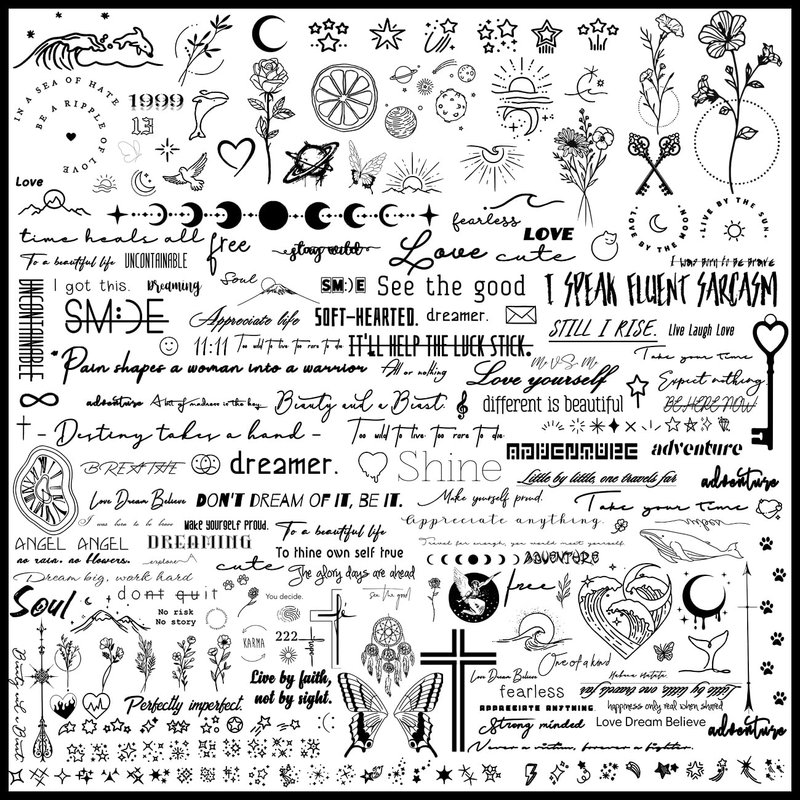 IN A SEA OF HATE
BE A RIPPLE OF LOVE
1999
13
Love
fearless
LOVE
LOVE BY THE MOON
LIVE BY THE SUN
time heals all
free
stay wild
Love
cute
To a beautiful life
UNCONTAINABLE
I was born to be brave
I got this.
Dreaming
Soul
SM:)E
See the good
I SPEAK FLUENT SARCASM
UNCONTAINABLE
SM:)E
Appreciate life
SOFT-HEARTED.
dreamer.
STILL I RISE.
Live Laugh Love
11:11
Too wild to live too rare to die
IT'LL HELP THE LUCK STICK.
Take your time
Pain shapes a woman into a warrior
All or nothing
Love yourself
Expect nothing
adventure
A bit of madness is the key.
Beauty and a Beast.
different is beautiful
BE HERE NOW
- Destiny takes a hand -
Too wild to live too rare to die
ADVENTURE
adventure
BREATHE
dreamer.
Shine
Little by little, one travels far
adventure
Love Dream Believe
DON'T DREAM OF IT, BE IT.
Make yourself proud.
Take your time
I was born to be brave
Make yourself proud.
To a beautiful life
Appreciate anything
ANGEL
ANGEL
DREAMING
To thine own self true
Travel far enough, you would meet yourself.
no rain. no flowers.
explore
cute
The glory days are ahead
ADVENTURE
Dream big, work hard
free
Soul
dont quit
You decide.
See the good
No risk
No story
KARMA
222
hope
Live by faith,
not by sight.
Beauty and a Beast
Perfectly imperfect.
One of a kind
Love Dream Believe
Hakuna Matata
fearless
Little by little, one travels far
APPRECIATE ANYTHING.
happiness only real when shared
Strong minded
Love Dream Believe
adventure
Never a victim, forever a fighter.